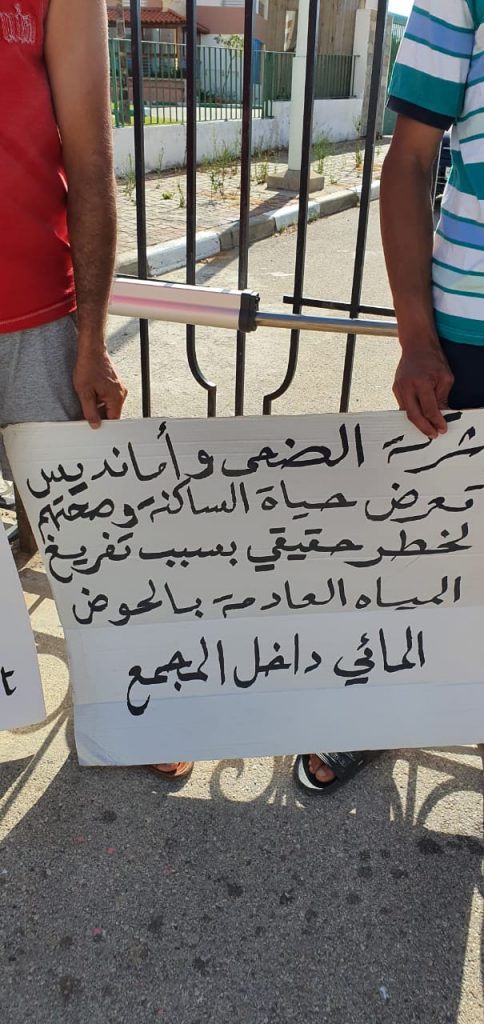 شركة الضحى وأمانديس
تعرض حياة الساكنة وصحتهم
لخطر حقيقي بسبب تفريغ
المياه العادمة بالحوض
المائي داخل المجمع
t